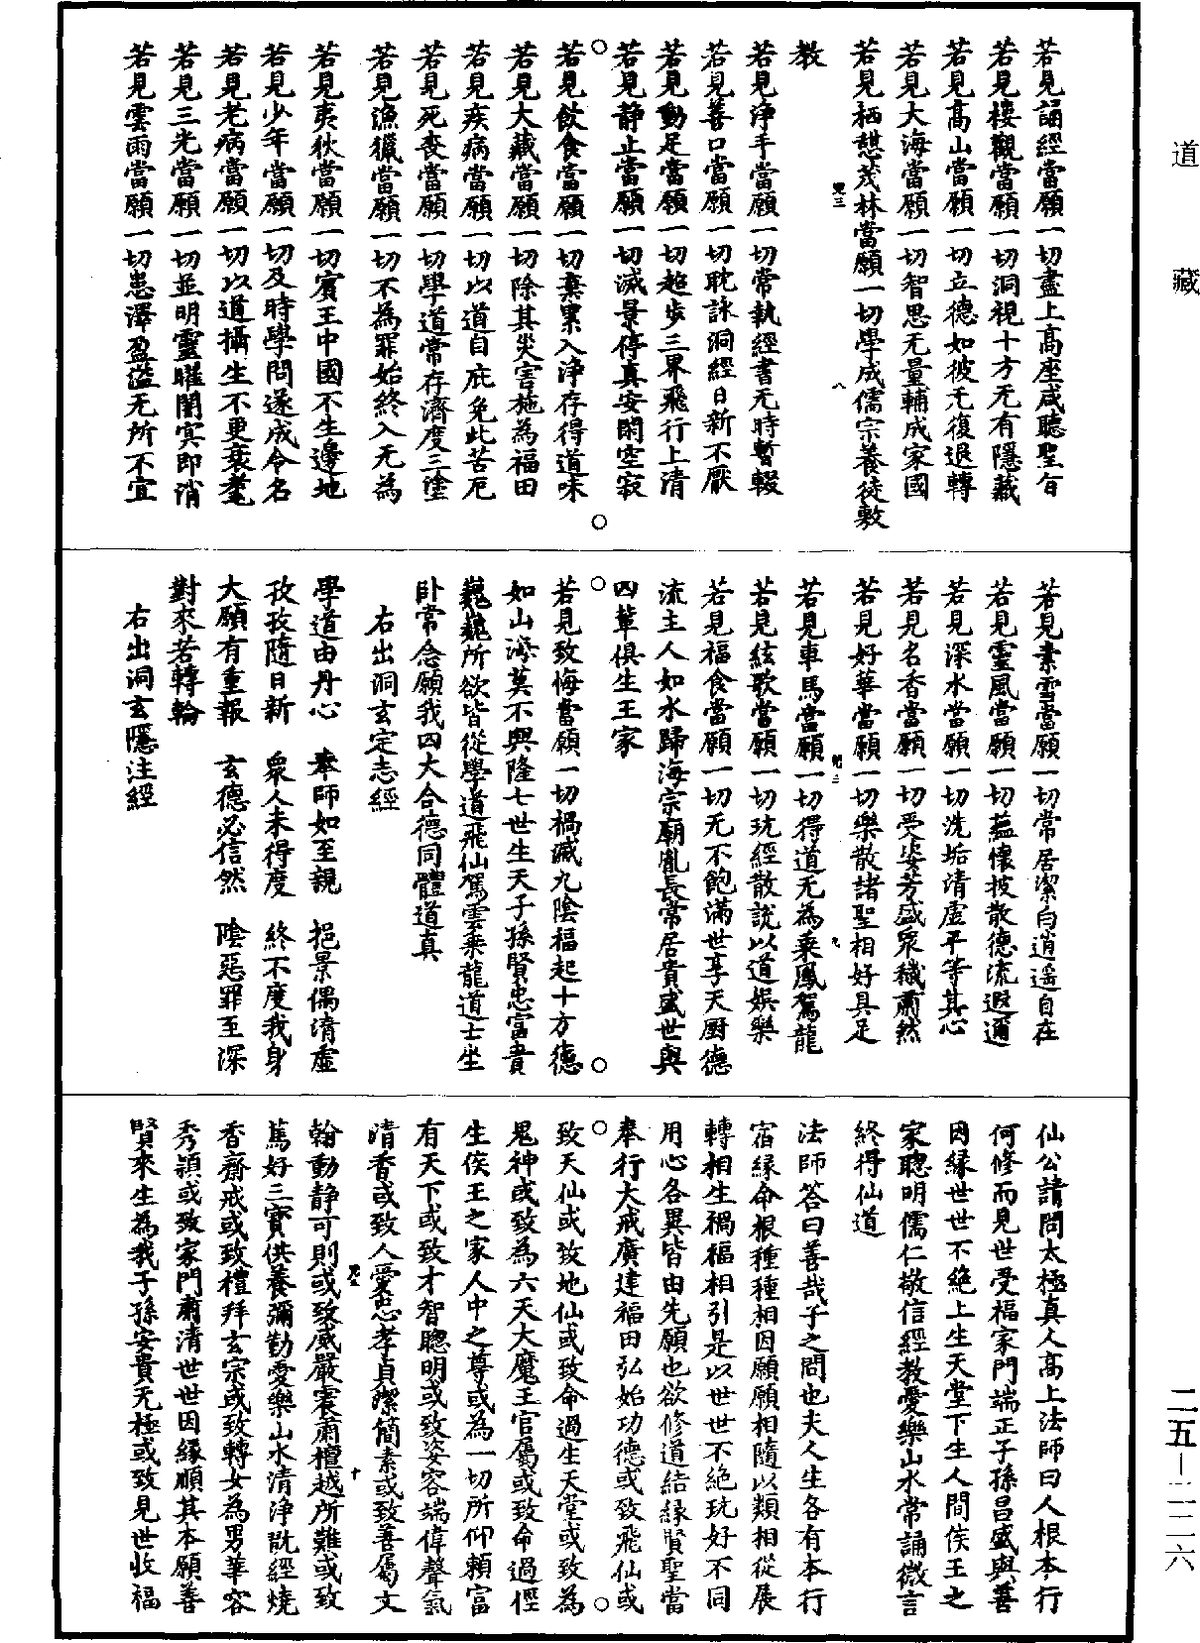 道藏
若見誦經當願一切盡上高座咸聽聖旨
若見樓觀當願一切洞視十方无有隱藏
若見高山當願一切立德如彼无復退轉
若見大海當願一切智思无量輔成家國
若見栖憇茂林當願一切學成儒宗養徒敷
教
若見淨手當願一切常執經書无時暫輟
若見善口當願一切耽詠洞經日新不厭
若見動足當願一切超步三界飛行上清
若見静止當願一切滅景停真安閑空寂
若見飲食當願一切棄累入淨存得道味
若見大藏當願一切除其災害施為福田
若見疾病當願一切以道自庇免此苦厄
若見死喪當願一切學道常存濟度三塗
若見漁獵當願一切不為罪始終入无為
若見夷狄當願一切賔王中國不生邊地
若見少年當願一切及時學問遂成令名
若見老病當願一切以道攝生不更衰耄
若見三光當願一切並明靈曜闇冥即消
若見雲雨當願一切惠澤盈溢无所不宜
若見素雪當願一切常居潔白逍遥自在
若見靈風當願一切藴懷披散德流遐邇
若見深水當願一切洗垢清虛平等其心
若見名香當願一切受姿芳盛衆穢肅然
若見好華當願一切樂散諸聖相好具足
若見車馬當願一切得道无為乘鳳駕龍
若見絃歌當願一切玩經散說以道娛樂
若見福食當願一切无不飽滿世享天厨德
流主人如水歸海宗廟胤長常居貴盛世與
四輩俱生王家
若見致悔當願一切禍滅九陰福起十方德
如山海莫不興隆七世生天子孫賢忠富貴
巍巍所欲皆從學道飛仙駕雲乘龍道士坐
卧常念願我四大合德同體道真
右出洞玄定志經
學道由丹心　奉師如至親　挹景偶清虛
孜孜隨日新　衆人未得度　終不度我身
大願有重報　玄德必信然　陰惡罪至深
對來若轉輪
右出洞玄隱注經
仙公請問太極真人高上法師曰人根本行
何修而見世受福家門端正子孫昌盛與善
因縁世世不絕上生天堂下生人間侯王之
家聰明儒仁敬信經教愛樂山水常誦微言
終得仙道
法師答曰善哉子之問也夫人生各有本行
宿縁命根種種相因願願相隨以類相從展
轉相生禍福相引是以世世不絕玩好不同
用心各異皆由先願也欲修道結縁賢聖當
奉行大戒廣建福田弘始功德或致飛仙或
致天仙或致地仙或致命過生天堂或致為
鬼神或致為六天大魔王官屬或致命過徑
生侯王之家人中之尊或為一切所仰賴富
有天下或致才智聰明或致姿容端偉聲氣
清香或致人愛忠孝貞潔簡素或致善屬文
翰動静可則或致威嚴震肅檀越所難或致
篤好三寶供養彌勤愛樂山水清淨翫經燒
香齋戒或致禮拜玄宗或致轉女為男華容
秀穎或致家門肅清世世因縁順其本願善
賢來生為我子孫安貴无極或致見世收福
二五－二二六